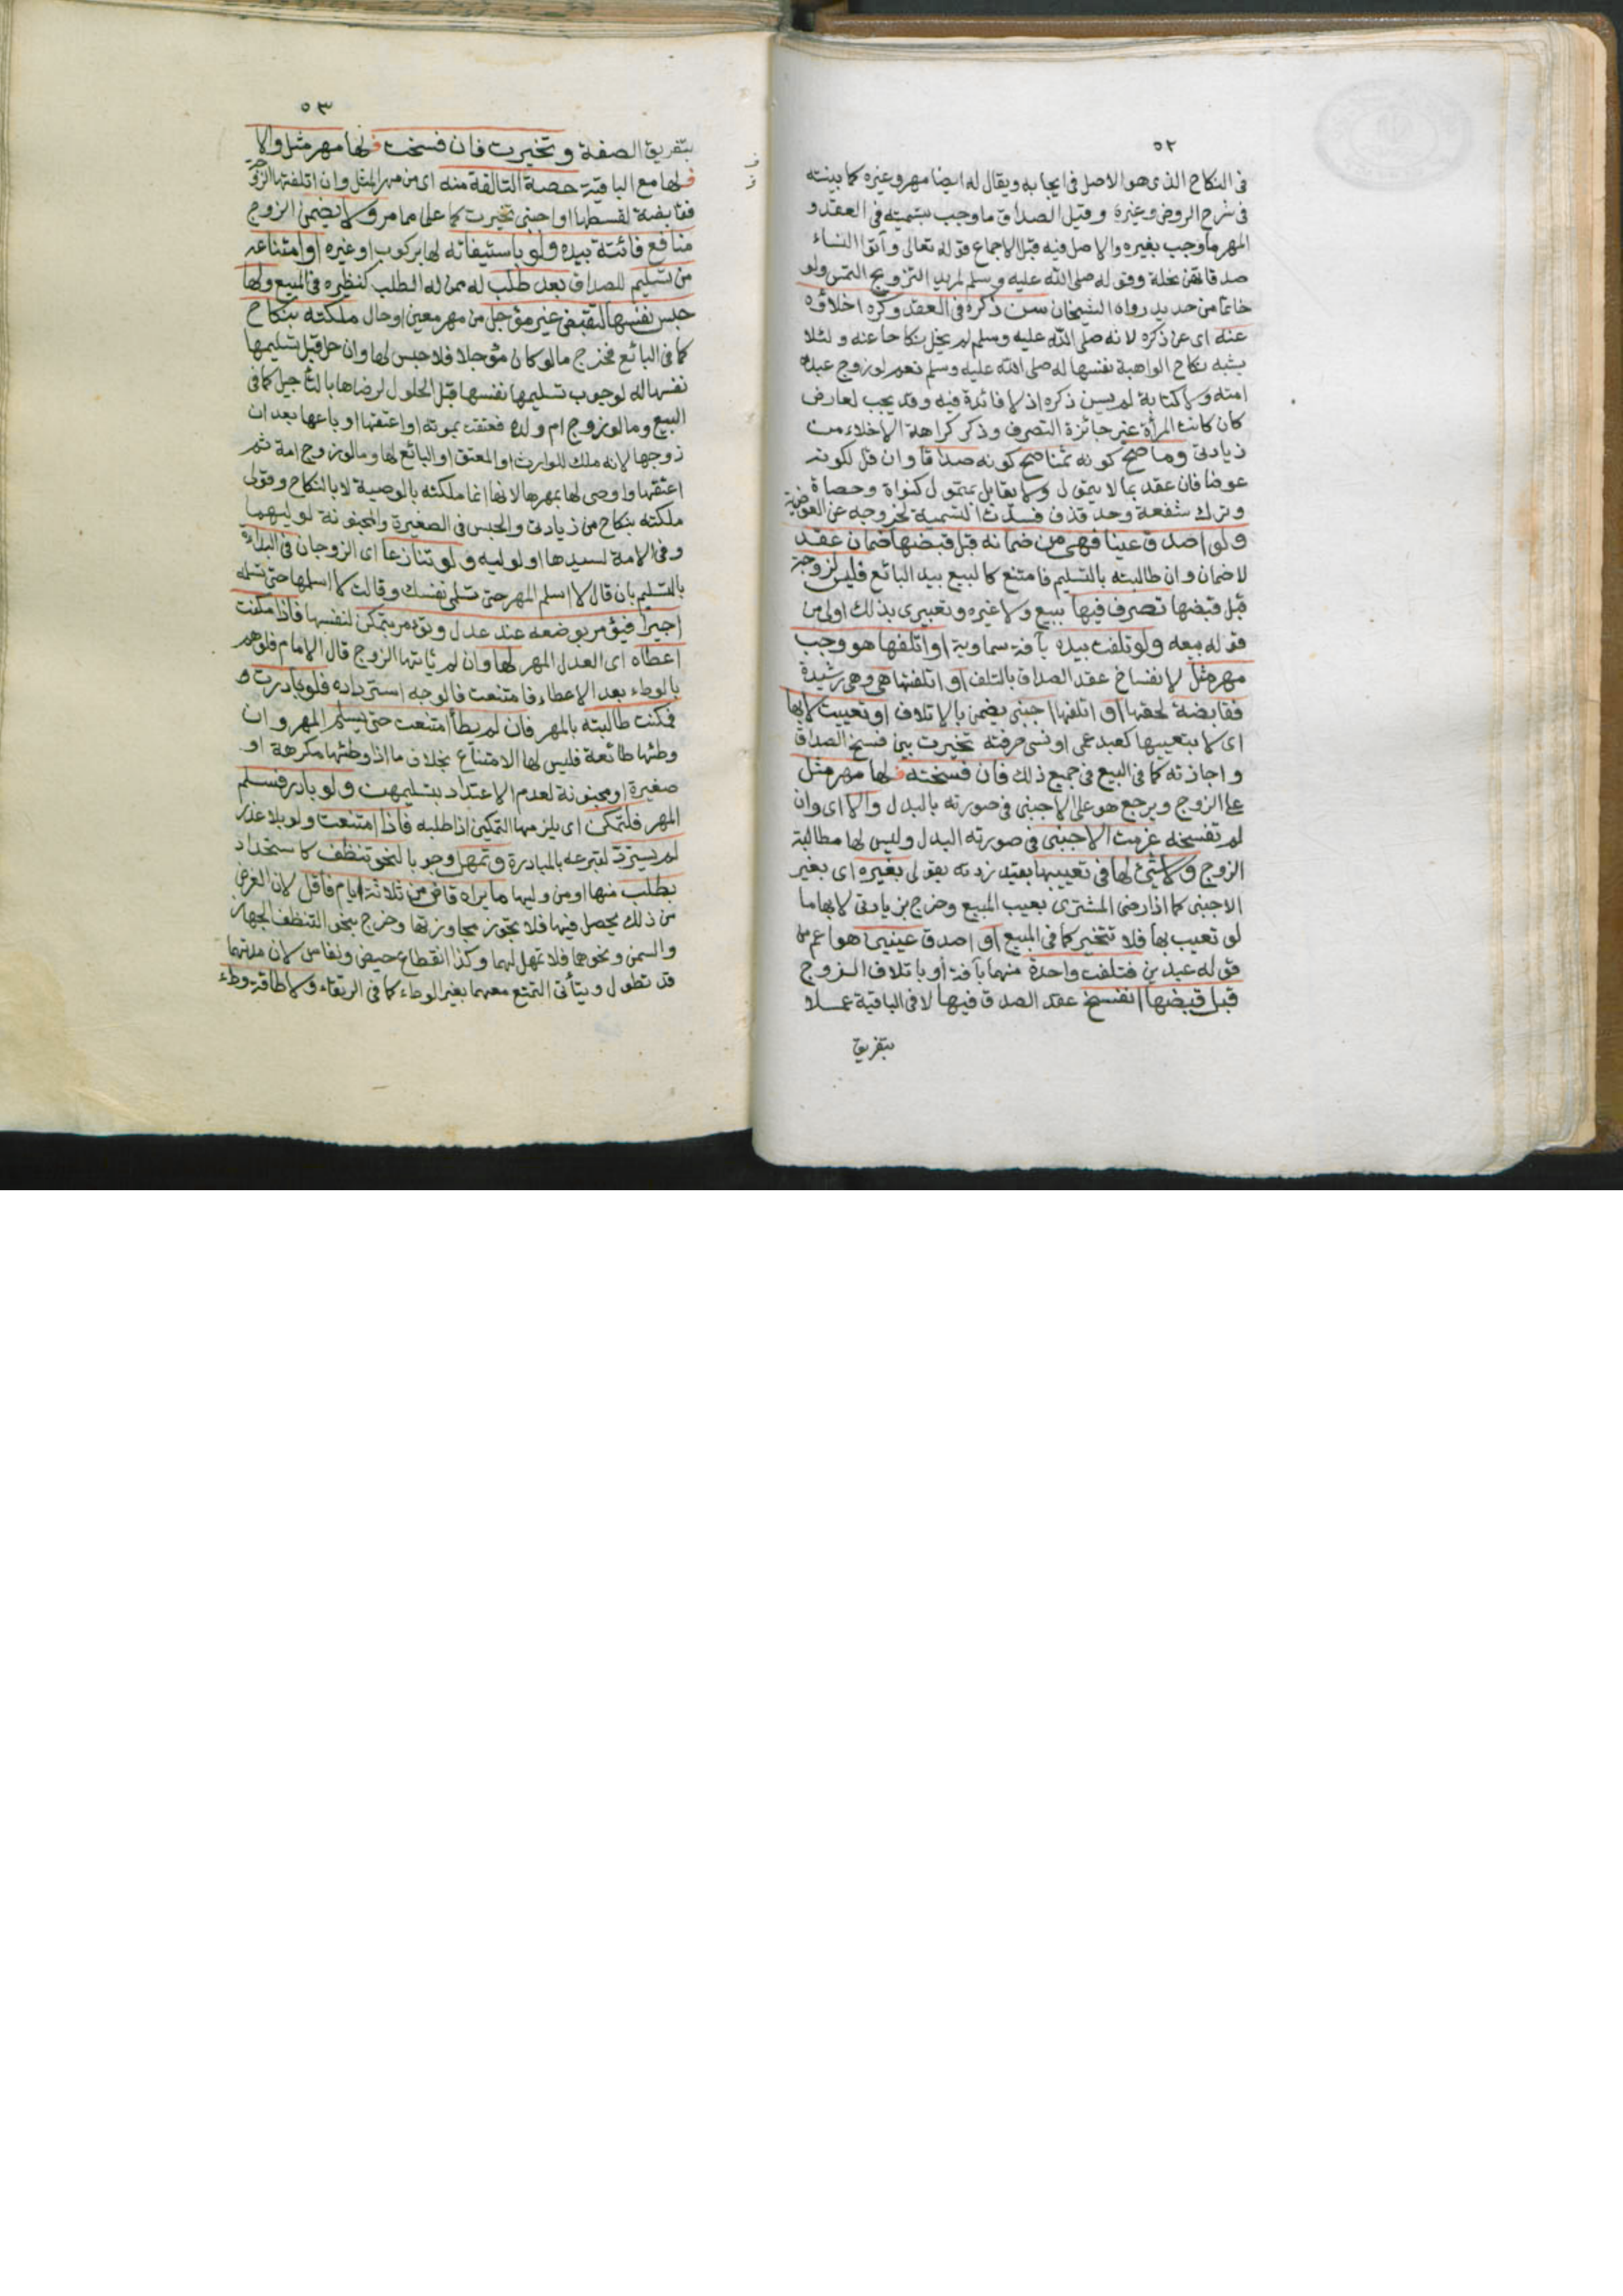 ٥٢
فى النكاح الذى هو الاصل فى ايجابه ويقال له ايضا مهر وغيره كما بينته
فى شرح الروض وغيره وقيل الصداق ما وجب بتسميته فى العقد و
المهر ما وجب بغيره والاصل فيه قبل الاجماع قوله تعالى وآتوا النساء
صدقاتهن نحلة وقوله صلى الله عليه وسلم لمريد التزويج التمس ولو
خاتما من حديد رواه الشيخان سن ذكره فى العقد وكره اخلاؤه
عنه اى عن ذكره لانه صلى الله عليه وسلم لم يخل نكاحا عنه ولئلا
يشبه نكاح الواهبة نفسها له صلى الله عليه وسلم نعم لو زوج عبده
امته ولا كتابة لم يسن ذكره اذ لا فائدة فيه وقد يجب لعارض
كان كانت المرأة غير جائزة التصرف وذكر كراهة الاخلاء من
زيادتى وما صح كونه ثمنا صح كونه صداقا وان قل لكونه
عوضا فان عقد بما لا يتمول ولا يقابل بمتمول كنواة وحصاة
وترك شفعة وحد قذف فسدت التسمية لخروجه عن العوضية
ولو اصدق عينا فهى من ضمانه قبل قبضها ضمان عقد
لا ضمان وان طالبته بالتسليم فامتنع كالمبيع بيد البائع فليس لزوجة
قبل قبضها تصرف فيها ببيع ولا غيره وتعبيرى بذلك اولى من
قوله بيعه ولو تلفت بيده بآفة سماوية او اتلفها هو وجب
مهر مثل لانفساخ عقد الصداق بالتلف او اتلفتها هى وهى رشيدة
فقابضة لحقها او اتلفها اجنبى يضمن بالاتلاف او تعيبت لا بها
اى لا بتعييبها كعبد عمى او نسى حرفته تخيرت بين فسخ الصداق
واجازته كما فى البيع فى جميع ذلك فان فسخته فلها مهر مثل
على الزوج ويرجع هو على الاجنبى فى صورته بالبدل والا اى وان
لم تفسخه غرمت الاجنبى فى صورته البدل وليس لها مطالبة
الزوج ولا شئ لها فى تعييبها بقيد زدته بقولى بغيره اى بغير
الاجنبى كما اذا رضى المشترى بعيب المبيع وخرج بزيادتى لا بها ما
لو تعيب بها فلا تتخير كما فى المبيع او اصدق عينين هو اعم من
قوله عبدين فتلفت واحدة منهما بآفة او باتلاف الزوج
قبل قبضها انفسخ عقد الصدق فيها لا فى الباقية عملا
بتفريق
٥٣
بتفريق الصفة وتخيرت فان فسخت فلها مهر مثل والا
فلها مع الباقية حصة التالفة منه اى من مهر المثل وان اتلفتها الزوجة
فقابضة لقسطها او اجنبى تخيرت كما علم مما مر ولا يضمن الزوج
منافع فائتة بيده ولو باستيفائه لها بركوب او غيره او امتناعه
من تسليم للصداق بعد طلب له ممن له الطلب كنظيره فى المبيع ولها
حبس نفسها لتقبض غير مؤجل من مهر معين او حال ملكته بنكاح
كما فى البائع فخرج ما لو كان مؤجلا فلا حبس لها وان حل قبل تسليمها
نفسها له لوجوب تسليمها نفسها قبل الحلول لرضاها بالتأجيل كما فى
البيع وما لو زوج ام ولده فعتقت بموته او اعتقها او باعها بعد ان
زوجها لانه ملك للوارث او المعتق او البائع لها وما لو زوج امة ثم
اعتقها واوصى لها بمهرها لانها انما ملكته بالوصية لا بالنكاح وقولى
ملكته بنكاح من زيادتى والحبس فى الصغيرة والمجنونة لوليهما
وفى الامة لسيدها او لوليه ولو تنازعا اى الزوجان فى البداءة
بالتسليم بان قال لا اسلم المهر حتى تسلمى نفسك وقالت لا اسلمها حتى تسلمه
اجبرا فيؤمر بوضعه عند عدل وتؤمر بتمكين لنفسها فاذا مكنت
اعطاه اى العدل المهر لها وان لم يأتها الزوج قال الامام فلو هم
بالوطء بعد الاعطاء فامتنعت فالوجه استرداده فلو بادرت و
فمكنت طالبته بالمهر فان لم يطأ امتنعت حتى يسلم المهر وان
وطئها طائعة فليس لها الامتناع بخلاف ما اذا وطئها مكرهة او
صغيرة او مجنونة لعدم الاعتداد بتسليمهن ولو بادر فسلم
المهر فلتمكن اى يلزمها التمكين اذا طلبه فاذا امتنعت ولو بلا عذر
لم يسترد لتبرعه بالمبادرة وتمهل وجوبا لنحو تنظف كاستحداد
بطلب منها او من وليها ما يراه قاض من ثلاثة ايام فاقل لان الغرض
من ذلك يحصل فيها فلا يجوز مجاوزتها وخرج بنحو التنظف الجهاز
والسمن ونحوهما فلا تمهل لهما وكذا انقطاع حيض ونفاس لان مدتهما
قد تطول ويتأتى التمتع معهما بغير الوطء كما فى الرتقاء ولاطاقة وطء